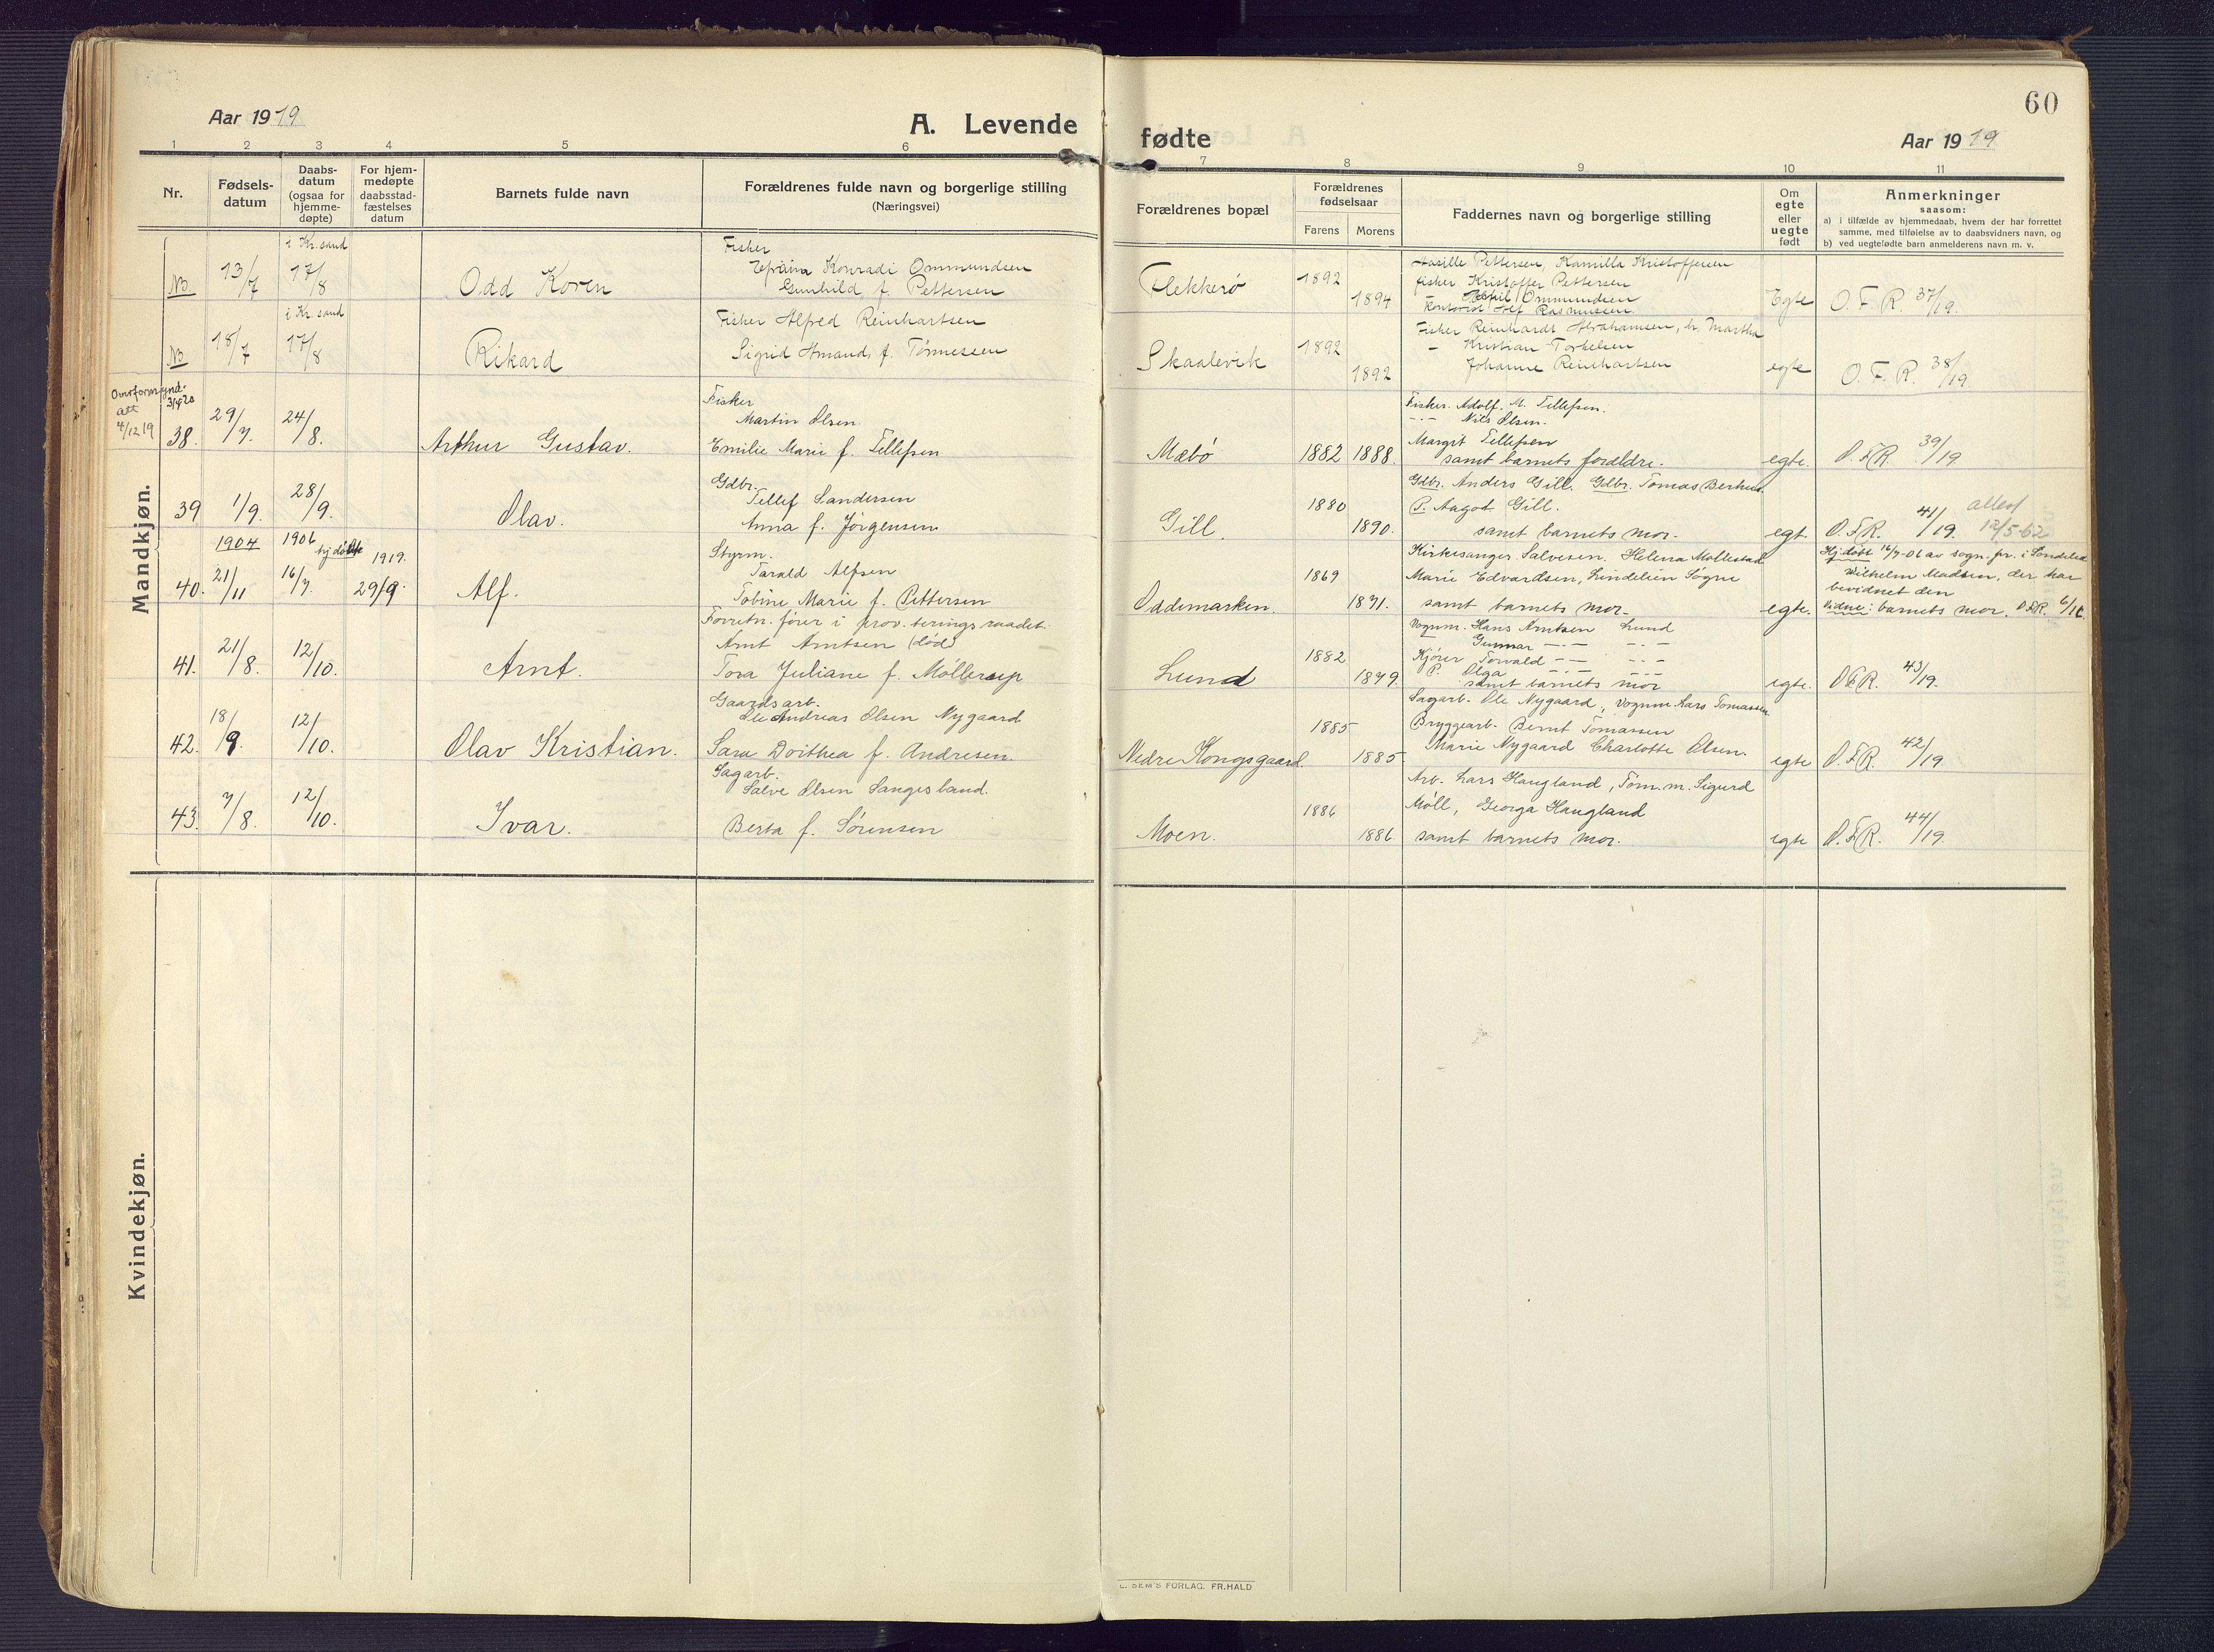 60
Aar 1919
A. Levende
fødte
Aar 1919
1 2 3 4 5 6 7 8 9 10 11
Nr.
Fødsels-
datum
Daabs-
datum
(ogsaa for
hjemme-
døpte)
For hjem-
medøpte
daabsstad-
fæstelses
datum
Barnets fulde navn
Forældrenes fulde navn og borgerlige stilling
(Næringsvei)
Forældrenes bopæl
Forældrenes
fødselsaar
Farens Morens
Faddernes navn og borgerlige stilling
Om
egte
eller
uegte
født
Anmerkninger
saasom:
a) i tilfælde av hjemmedaab, hvem der har forrettet
samme, med tilføielse av to daabsvidners navn, og
b) ved uegtefødte barn anmelderens navn m. v.
Mandkjøn.
i Kr. sand
NB. 13/7 17/8 Odd Koren
Fisker
Konradi Ommundsen
Gunhild f. Pettersen
Flekkerø 1892 1894
Pettersen, Kamilla Kristoffersen
fisker Kristoffer Pettersen
Ommundsen
Kontorist Alf Rasmussen
Egte O. F. R. 37/19.
i Kr. sand
NB 18/7 17/8 Rikard
Fisker Alfred Reinhartsen
Sigrid Amanda f. Tønnessen
Skaalevik 1892 1892
Fisker Reinhardt Abrahamsen, h. Martha
– Kristian Torkelsen
Johanne Reinhartsen
egte O. F. R. 38/19.
att
4/12 19
38. 29/7. 24/8. Arthur Gustav.
Fisker
Martin Olsen
Emilie Marie f. Tellefsen
Mæbø 1882 1888.
Fisker. Adolf. M. Tellefsen.
-·- Nils Olsen.
Margit Tellefsen
samt barnets foreldre.
egte. O.F.R. 39/19
39 1/9. 28/9. Olav.
Gdbr.
Tellef Sandersen
Anna f. Jørgensen
Gill. 1880 1890.
Gdbr. Anders Gill. Gdbr. Tomas Berhus.
P. Aagot Gill.
samt barnets mor.
egt. O.F.R. 41/19. attest
12/5-62
1904 1906 1919.
40. 21/11 16/7. 29/9. Alf.
Styrm.
Tarald Alfsen
Tobine Marie f. Pettersen
Oddemarken. 1869 1871.
Kirkesanger Salvesen, Helena Mollestad
Marie Edvardsen, Lindelien Søgne
samt barnets mor.
egte.
Hj. døbt 16/7-06 av sogn. pr. i Søndeled
Wilhelm Madsen, der har
bevidnet den
Vidne: barnets mor. O.F.R.
41. 21/8. 12/10. Arnt.
Forretn. fører i prov.teringsraadet.
Arnt Arntsen (død)
Tora Juliane f. Møllerup
Lund 1882 1879.
Vognm. Hans Arntsen Lund
Gunnar -·- -·-
Kjører Torvald -- -·-
P. Olga -·- -·-
samt barnets mor
egte. O.F.R. 43/19.
42. 18/9. 12/10. Olav Kristian.
Gaardsarb.
Ole Andreas Olsen Nygaard
Sara Dorthea f. Andresen.
Nedre Kongsgaard. 1885 1885
Sagarb. Ole Nygaard, Vognm Lars Tomassen
Bryggearb. Bernt Tomassen
Marie Nygaard Charlotte Olsen.
egte O.F.R. 42/19
43. 7/8. 12/10. Ivar.
Sagarb.
Salve Olsen Langesland.
Berta f. Sørensen
Moen. 1886 1886
Arb. Lars Haugland, Tøm.m. Sigurd
Moll, Georga Haugland
samt barnets mor.
egte O.F.R. 44/19.
Kvindekjøn.
E. SEM'S FORLAG. FR.HALD